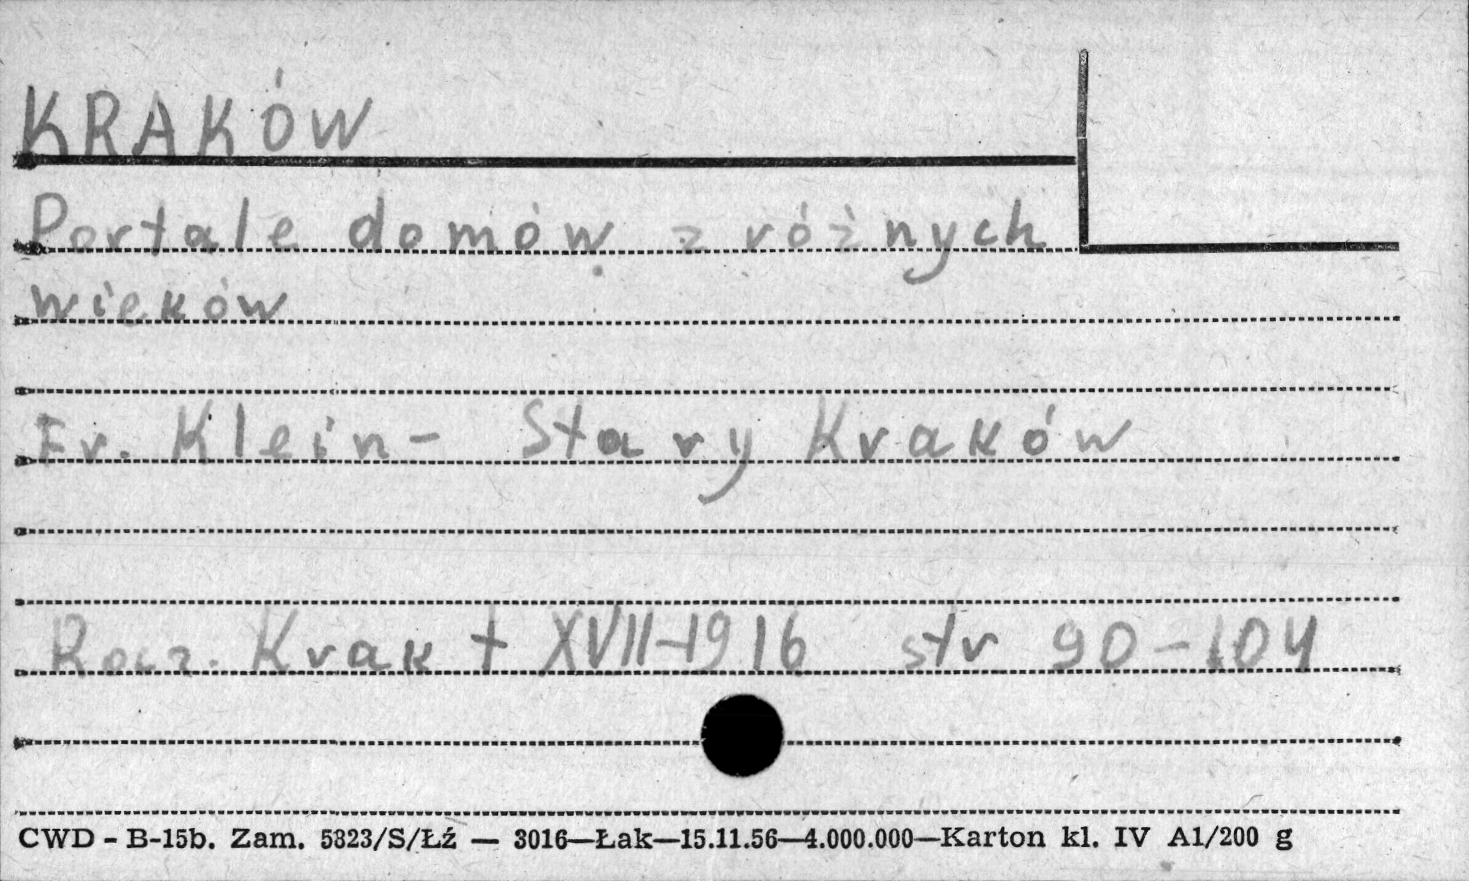 KRAKÓW
Portale domów z różnych
wieków
Fr. Klein - Stary Kraków
Rocz. Krak t XVII-1916 str 90-104
CWD - B-15b. Zam. 5823/S/Łź — 3016—Łak—15.11.56—4.000.000—Karton kl. IV A1/200 g